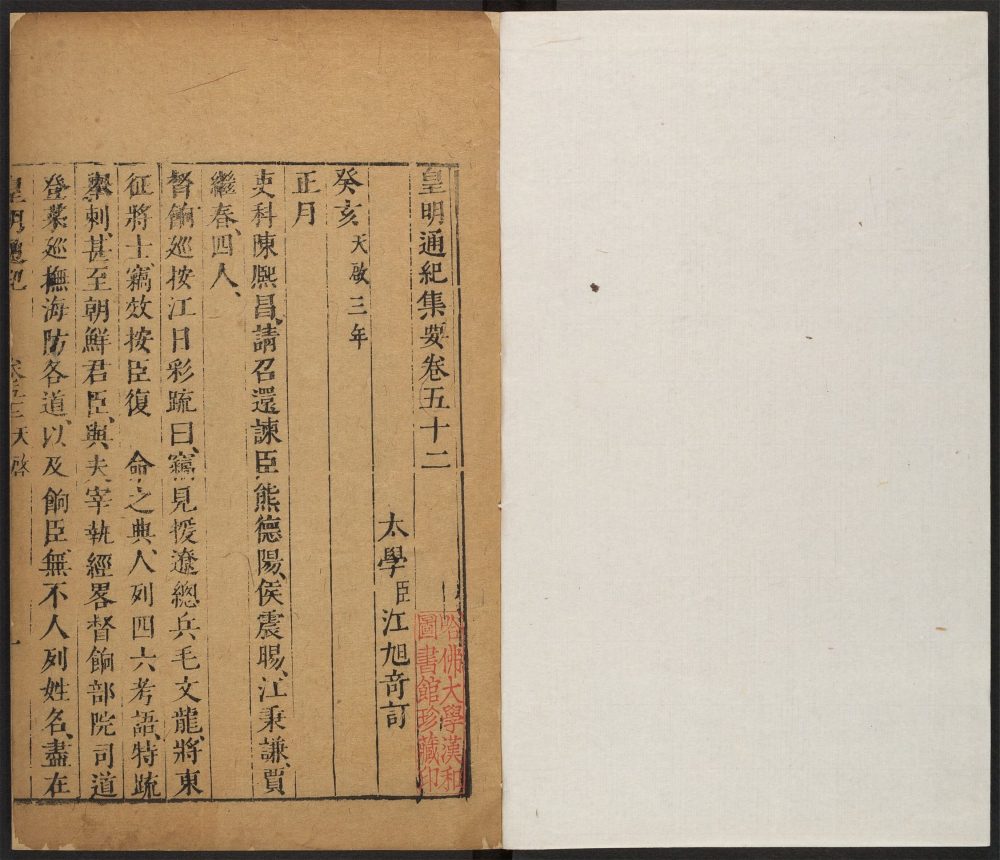 皇明通紀集要卷五十二
太學臣江旭奇訂
癸亥天啟三年
正月
吏科陳熈昌、請召還諫臣熊德陽、侯震暘、江秉謙、賈
繼春、四人、
督餉巡按江日彩疏曰、竊見援遼總兵毛文龍、將東
征將士、竊效按臣復　命之典、人列四六考語、特疏
舉刺、甚至朝鮮君臣、與夫宰執經畧督餉部院司道
登萊巡撫海防各道、以及餉臣、無不人列姓名、盡在
皇明通紀　卷五十二天啓　一
哈佛大學漢和
圖書館珍藏印